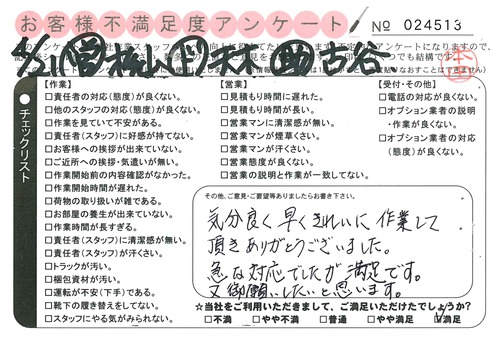 お客様不満足度アンケート
No 024513
4/21
古谷
チェックリスト
【作業】
□責任者の対応（態度）が良くない。
□他のスタッフの対応（態度）が良くない。
□作業を見ていて不安がある。
□責任者（スタッフ）に好感が持てない。
□お客様への挨拶が出来ていない。
□ご近所への挨拶・気遣いが無い。
□作業開始前の内容確認がなかった。
□作業開始時間が遅れた。
□荷物の取り扱いが雑である。
□お部屋の養生が出来ていない。
□作業時間が長すぎる。
□責任者（スタッフ）に清潔感が無い。
□責任者（スタッフ）が汗くさい。
□トラックが汚い。
□梱包資材が汚い。
□運転が不安（下手）である。
□靴下の履き替えをしてない。
□スタッフにやる気がみられない。
【営業】
□見積もり時間に遅れた。
□見積もり時間が長い。
□営業マンに清潔感が無い。
□営業マンが煙草くさい。
□営業マンが汗くさい。
□営業態度が良くない。
□営業の説明と作業が一致してない。
【受付・その他】
□電話の対応が良くない。
□オプション業者の説明
・作業が良くない。
□オプション業者の対応
（態度）が良くない。
その他、ご意見・ご要望等ありましたらお書き下さい。
気分良く早くきれいに作業して
頂きありがとうございました。
急な対応でしたが満足です。
又御願いしたいと思います。
☆当社をご利用いただきまして、ご満足いただけたでしょうか？
□不満 □やや不満 □普通 □やや満足 ☑満足